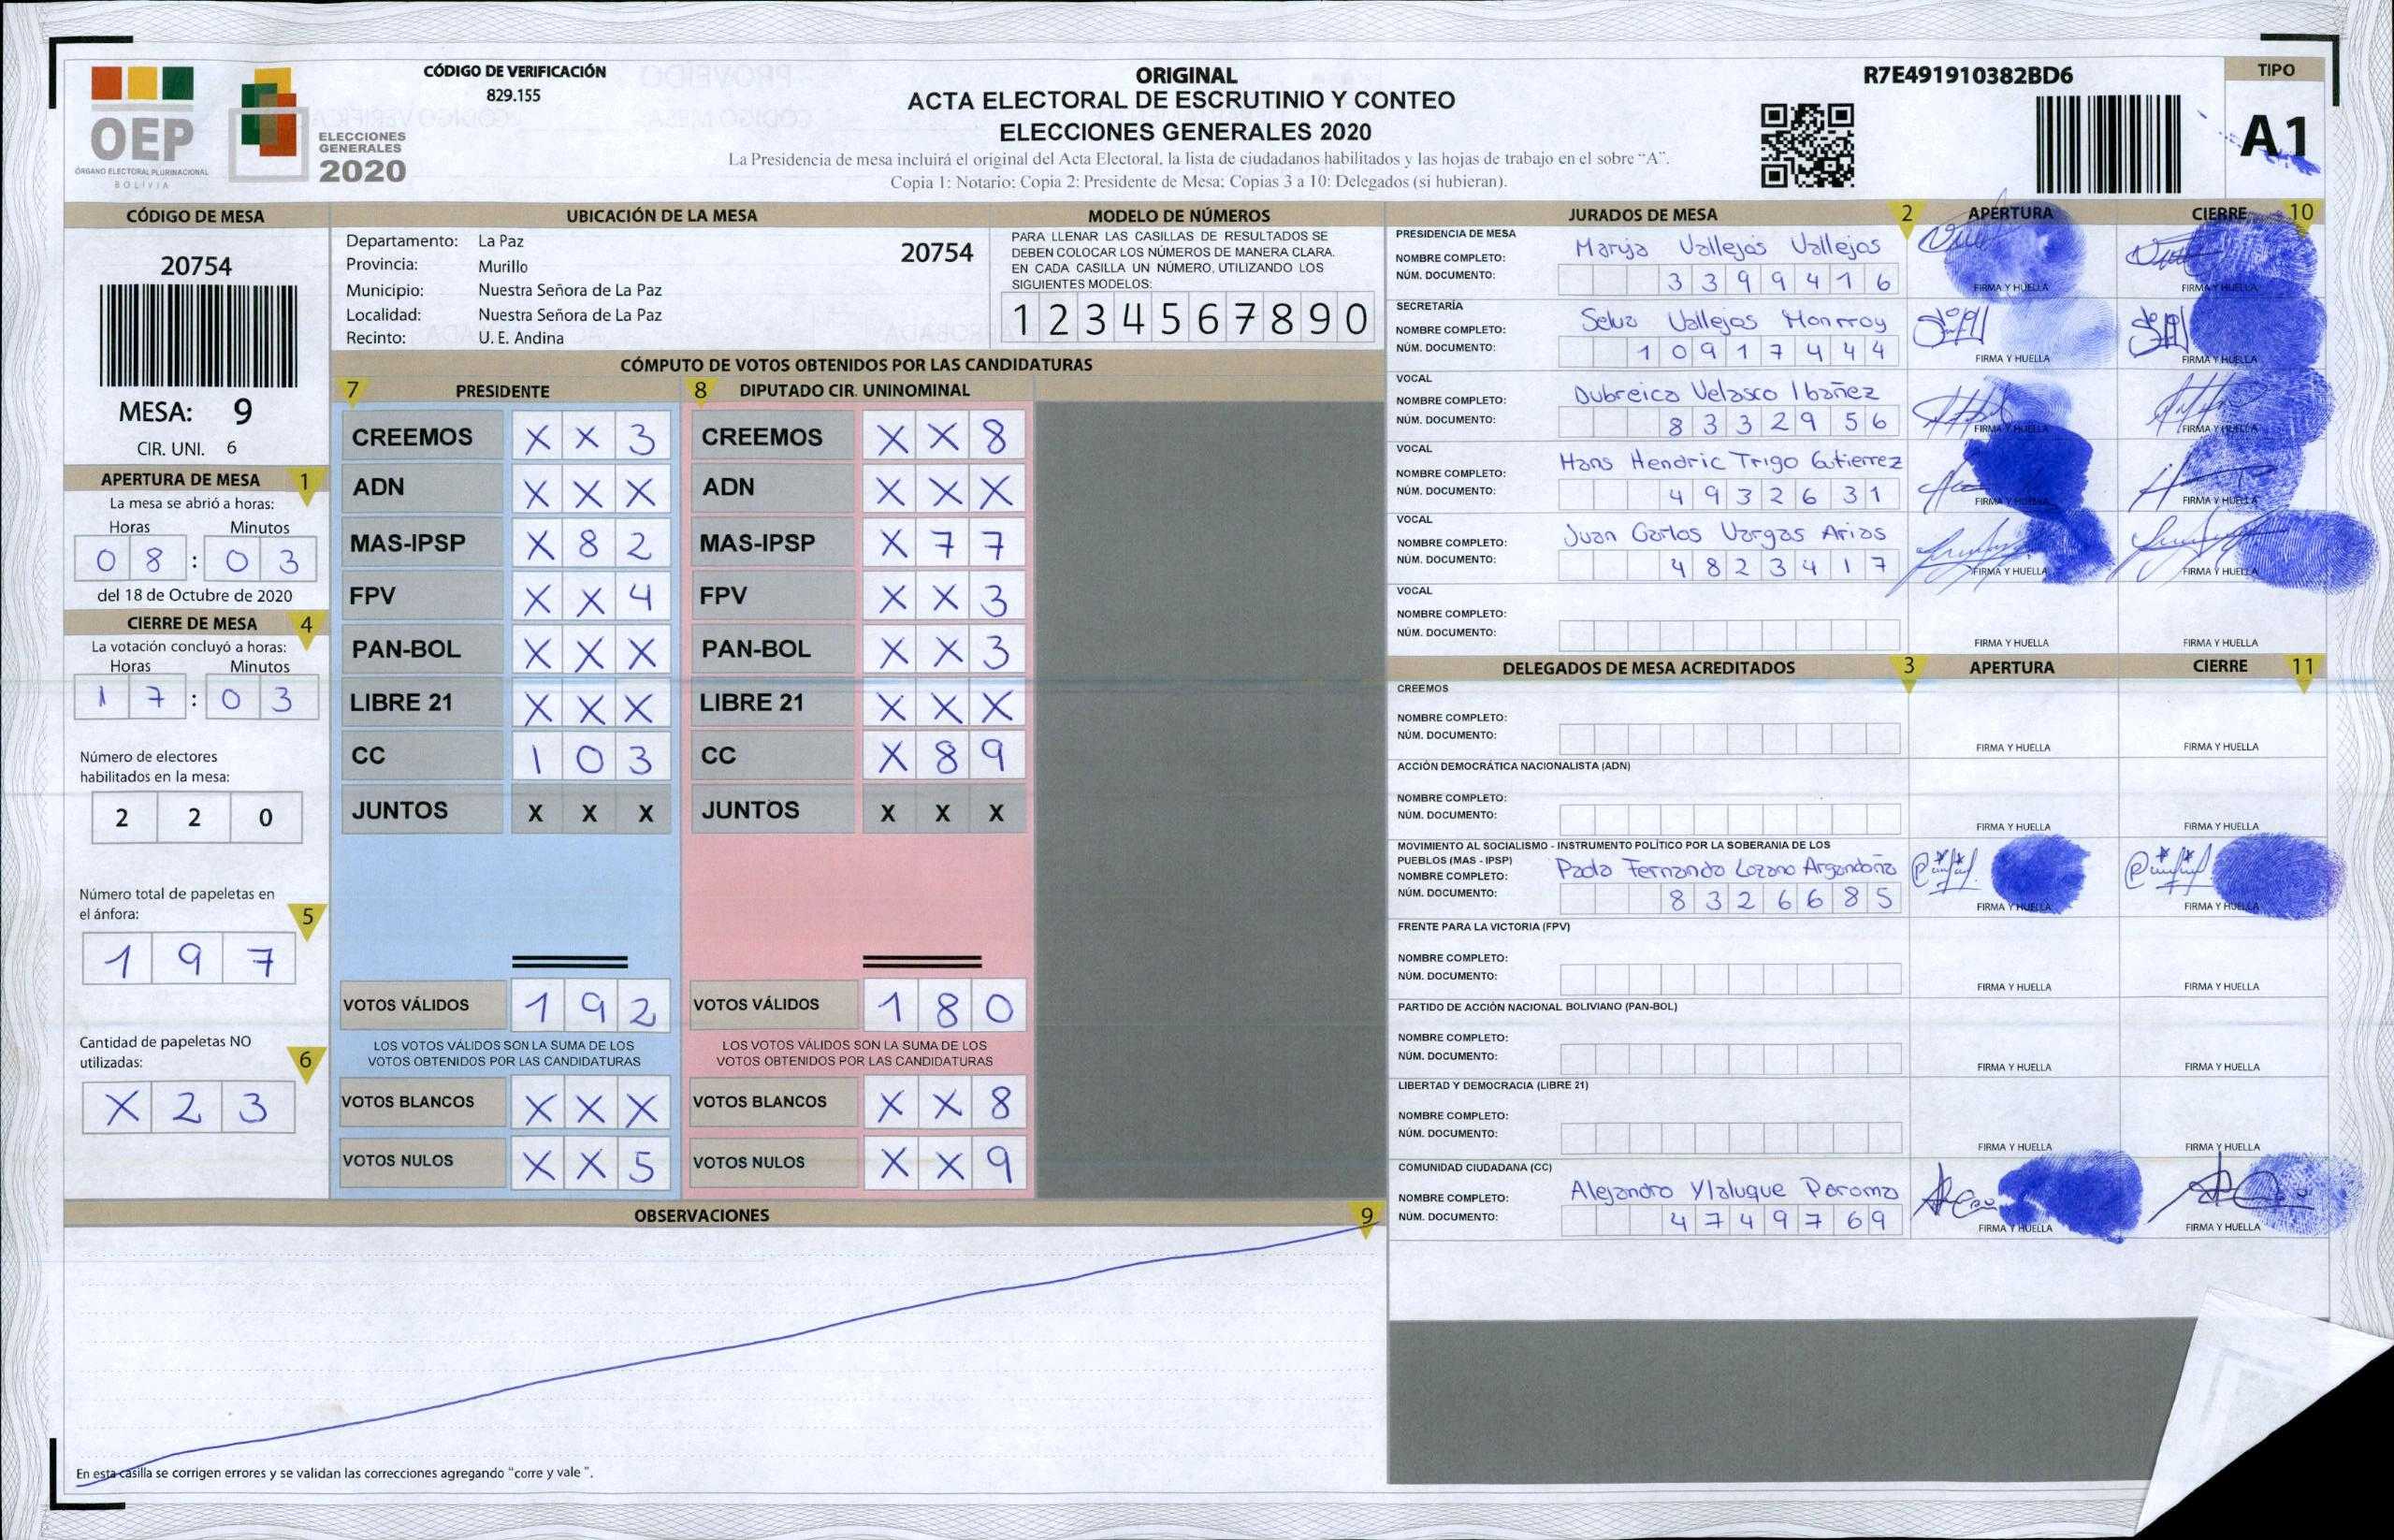 CÓDIGO DE VERIFICACIÓN
829.155
OEP
ÓRGANO ELECTORAL PLURINACIONAL
BOLIVIA
ELECCIONES
GENERALES
2020
ORIGINAL
ACTA ELECTORAL DE ESCRUTINIO Y CONTEO
ELECCIONES GENERALES 2020
La Presidencia de mesa incluirá el original del Acta Electoral, la lista de ciudadanos habilitados y las hojas de trabajo en el sobre “A”.
Copia 1: Notario: Copia 2: Presidente de Mesa: Copias 3 a 10: Delegados (si hubieran).
R7E491910382BD6
TIPO
A1
CÓDIGO DE MESA
20754
MESA: 9
CIR. UNI. 6
APERTURA DE MESA 1
La mesa se abrió a horas:
Horas Minutos
0 8 : 0 3
del 18 de Octubre de 2020
CIERRE DE MESA 4
La votación concluyó a horas:
Horas Minutos
1 7 : 0 3
Número de electores
habilitados en la mesa:
2 2 0
Número total de papeletas en
el ánfora: 5
1 9 7
Cantidad de papeletas NO
utilizadas: 6
X 2 3
UBICACIÓN DE LA MESA
Departamento: La Paz 20754
Provincia: Murillo
Municipio: Nuestra Señora de La Paz
Localidad: Nuestra Señora de La Paz
Recinto: U. E. Andina
MODELO DE NÚMEROS
PARA LLENAR LAS CASILLAS DE RESULTADOS SE
DEBEN COLOCAR LOS NÚMEROS DE MANERA CLARA.
EN CADA CASILLA UN NÚMERO, UTILIZANDO LOS
SIGUIENTES MODELOS:
1 2 3 4 5 6 7 8 9 0
CÓMPUTO DE VOTOS OBTENIDOS POR LAS CANDIDATURAS
7 PRESIDENTE 8 DIPUTADO CIR. UNINOMINAL
CREEMOS X X 3 CREEMOS X X 8
ADN X X X ADN X X X
MAS-IPSP X 8 2 MAS-IPSP X 7 7
FPV X X 4 FPV X X 3
PAN-BOL X X X PAN-BOL X X 3
LIBRE 21 X X X LIBRE 21 X X X
CC 1 0 3 CC X 8 9
JUNTOS X X X JUNTOS X X X
VOTOS VÁLIDOS 1 9 2 VOTOS VÁLIDOS 1 8 0
LOS VOTOS VÁLIDOS SON LA SUMA DE LOS LOS VOTOS VÁLIDOS SON LA SUMA DE LOS
VOTOS OBTENIDOS POR LAS CANDIDATURAS VOTOS OBTENIDOS POR LAS CANDIDATURAS
VOTOS BLANCOS X X X VOTOS BLANCOS X X 8
VOTOS NULOS X X 5 VOTOS NULOS X X 9
OBSERVACIONES 9
En esta casilla se corrigen errores y se validan las correcciones agregando “corre y vale ”.
JURADOS DE MESA 2 APERTURA CIERRE 10
PRESIDENCIA DE MESA
NOMBRE COMPLETO: Marija Vallejos Vallejos
NÚM. DOCUMENTO: 3 3 9 9 4 1 6
FIRMA Y HUELLA FIRMA Y HUELLA
SECRETARÍA
NOMBRE COMPLETO: Selva Vallejos Monrroy
NÚM. DOCUMENTO: 1 0 9 1 7 4 4 4
FIRMA Y HUELLA FIRMA Y HUELLA
VOCAL
NOMBRE COMPLETO: Dubreica Velasco Ibañez
NÚM. DOCUMENTO: 8 3 3 2 9 5 6
FIRMA Y HUELLA FIRMA Y HUELLA
VOCAL
NOMBRE COMPLETO: Hans Hendric Trigo Gutierrez
NÚM. DOCUMENTO: 4 9 3 2 6 3 1
FIRMA Y HUELLA FIRMA Y HUELLA
VOCAL
NOMBRE COMPLETO: Juan Carlos Vargas Arias
NÚM. DOCUMENTO: 4 8 2 3 4 1 7
FIRMA Y HUELLA FIRMA Y HUELLA
VOCAL
NOMBRE COMPLETO:
NÚM. DOCUMENTO:
FIRMA Y HUELLA FIRMA Y HUELLA
DELEGADOS DE MESA ACREDITADOS 3 APERTURA CIERRE 11
CREEMOS
NOMBRE COMPLETO:
NÚM. DOCUMENTO:
FIRMA Y HUELLA FIRMA Y HUELLA
ACCIÓN DEMOCRÁTICA NACIONALISTA (ADN)
NOMBRE COMPLETO:
NÚM. DOCUMENTO:
FIRMA Y HUELLA FIRMA Y HUELLA
MOVIMIENTO AL SOCIALISMO - INSTRUMENTO POLÍTICO POR LA SOBERANIA DE LOS
PUEBLOS (MAS - IPSP)
NOMBRE COMPLETO: Paola Fernanda Lozano Argandoña
NÚM. DOCUMENTO: 8 3 2 6 6 8 5
FIRMA Y HUELLA FIRMA Y HUELLA
FRENTE PARA LA VICTORIA (FPV)
NOMBRE COMPLETO:
NÚM. DOCUMENTO:
FIRMA Y HUELLA FIRMA Y HUELLA
PARTIDO DE ACCIÓN NACIONAL BOLIVIANO (PAN-BOL)
NOMBRE COMPLETO:
NÚM. DOCUMENTO:
FIRMA Y HUELLA FIRMA Y HUELLA
LIBERTAD Y DEMOCRACIA (LIBRE 21)
NOMBRE COMPLETO:
NÚM. DOCUMENTO:
FIRMA Y HUELLA FIRMA Y HUELLA
COMUNIDAD CIUDADANA (CC)
NOMBRE COMPLETO: Alejandro Ylaluque Paroma
NÚM. DOCUMENTO: 4 7 4 9 7 6 9
FIRMA Y HUELLA FIRMA Y HUELLA